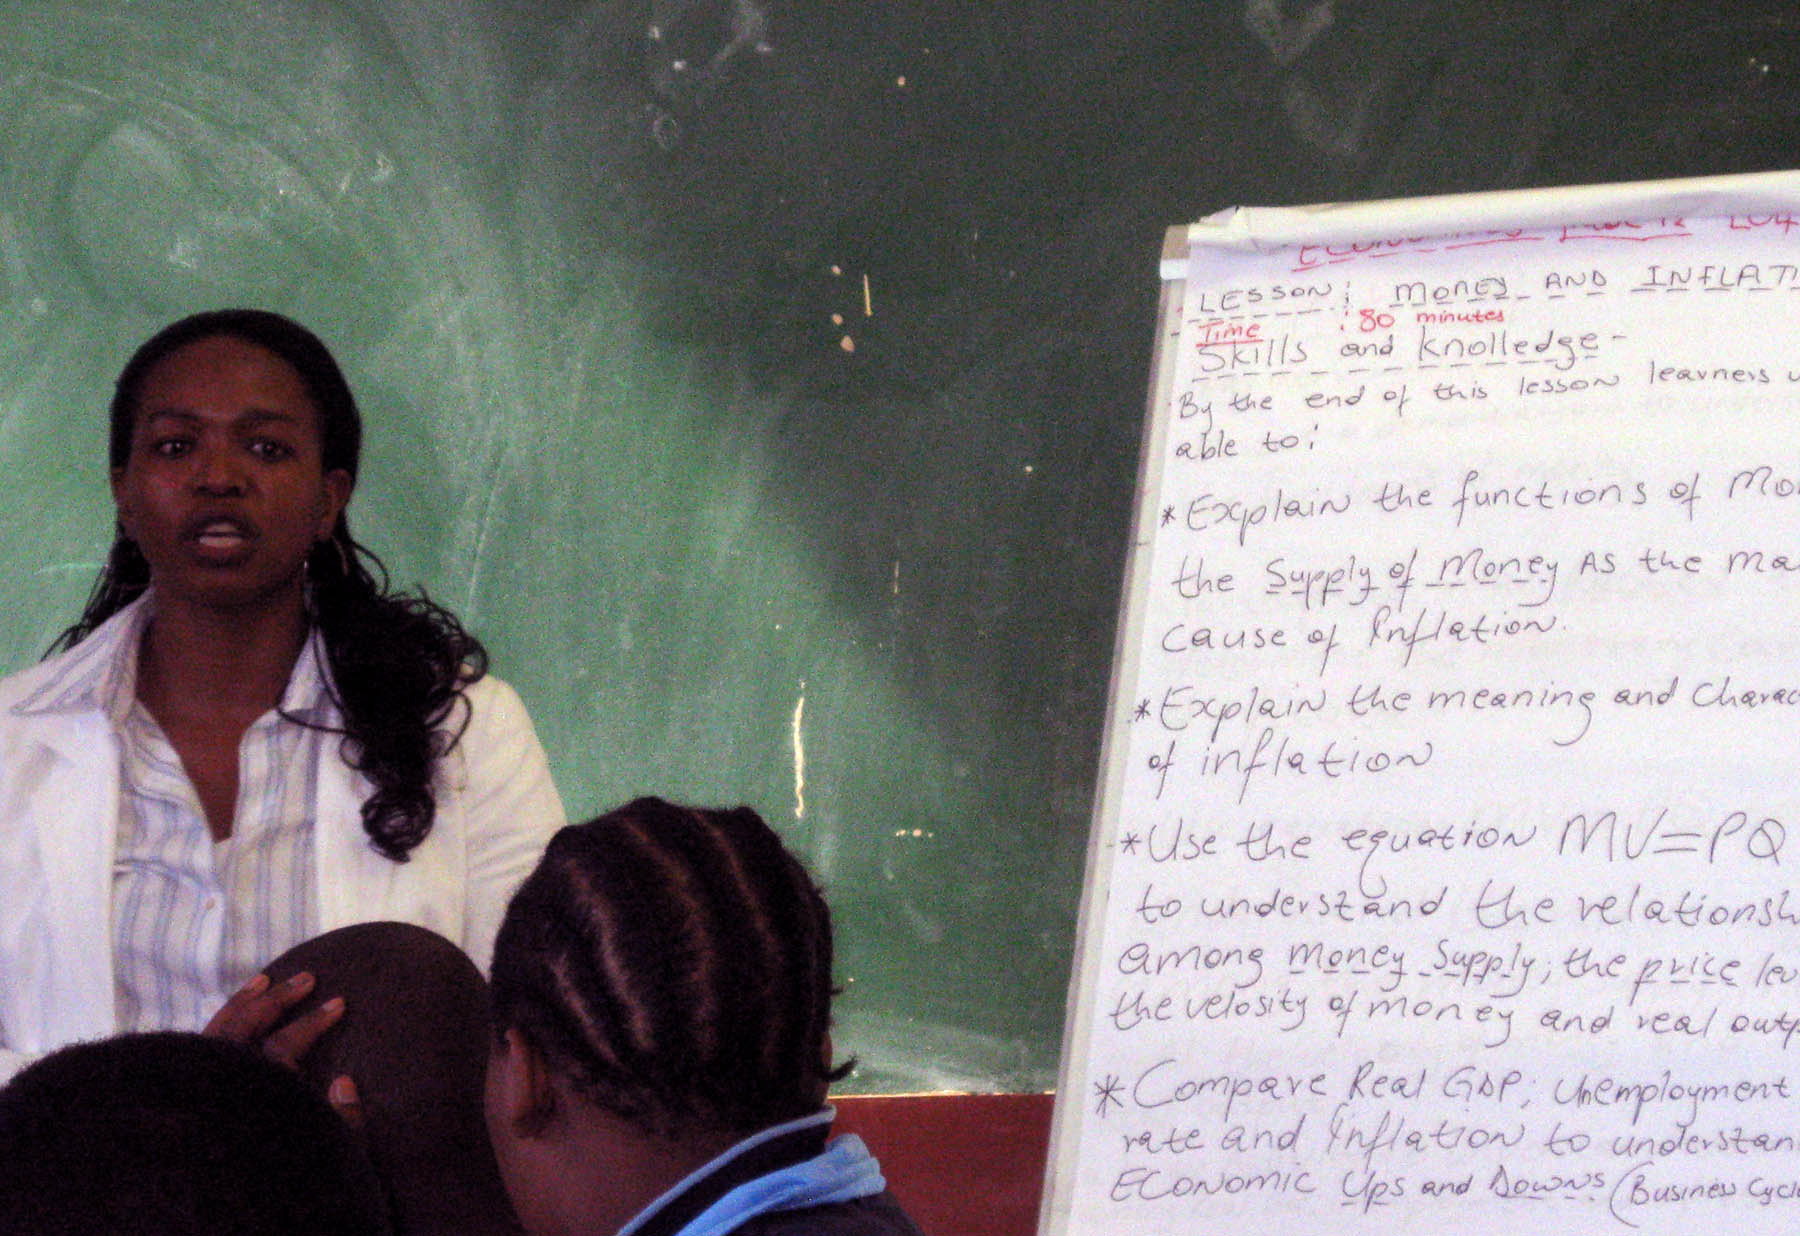 LESSON: MONEY AND INFLATI
Time : 80 minutes
Skills and Knolledge -
By the end of this lesson learners w
able to:
* Explain the functions of Mon
the Supply of Money As the Ma
cause of Inflation.
* Explain the meaning and Charac
of inflation
* Use the equation MV=PQ
to understand the relationsh
among Money Supply; the price lev
the velosity of money and real outp
* Compare Real GDP; Unemployment
rate and Inflation to understan
ECONOMIC Ups and Downs (Business Cycle